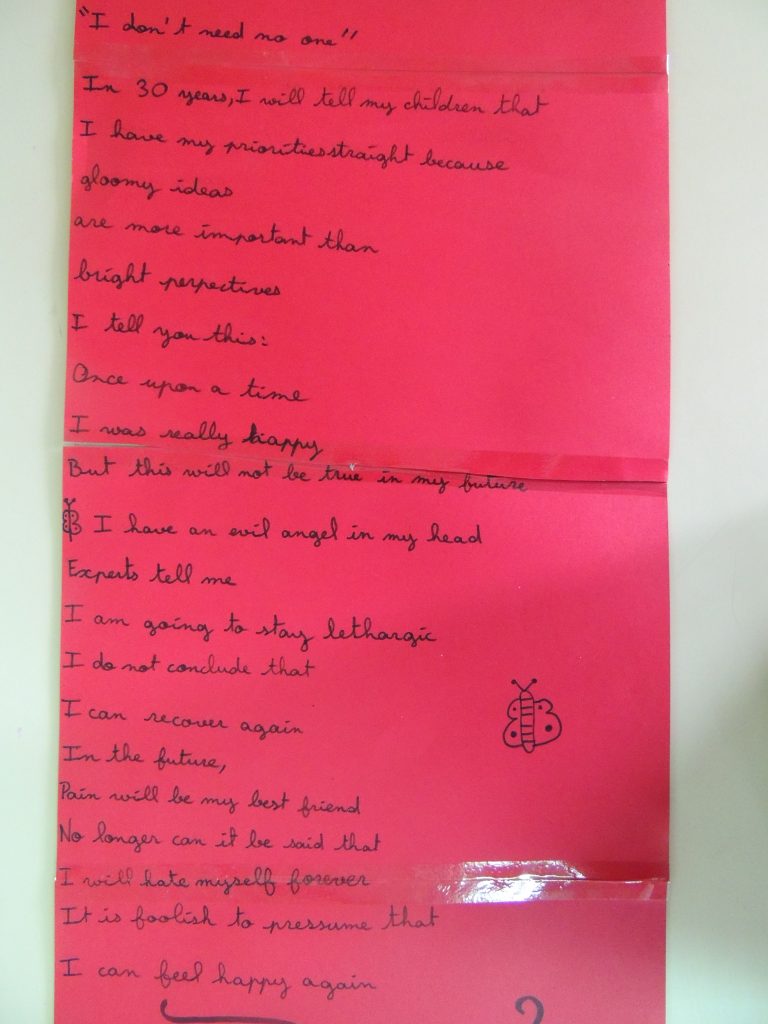 "I don't need no one"
In 30 years, I will tell my children that
I have my priorities straight because
gloomy ideas
are more important than
bright perpectives
I tell you this:
Once upon a time
I was really happy
But this will not be true in my future
I have an evil angel in my head
Experts tell me
I am going to stay lethargic
I do not conclude that
I can recover again
In the future,
Pain will be my best friend
No longer can it be said that
I will hate myself forever
It is foolish to pressume that
I can feel happy again
?